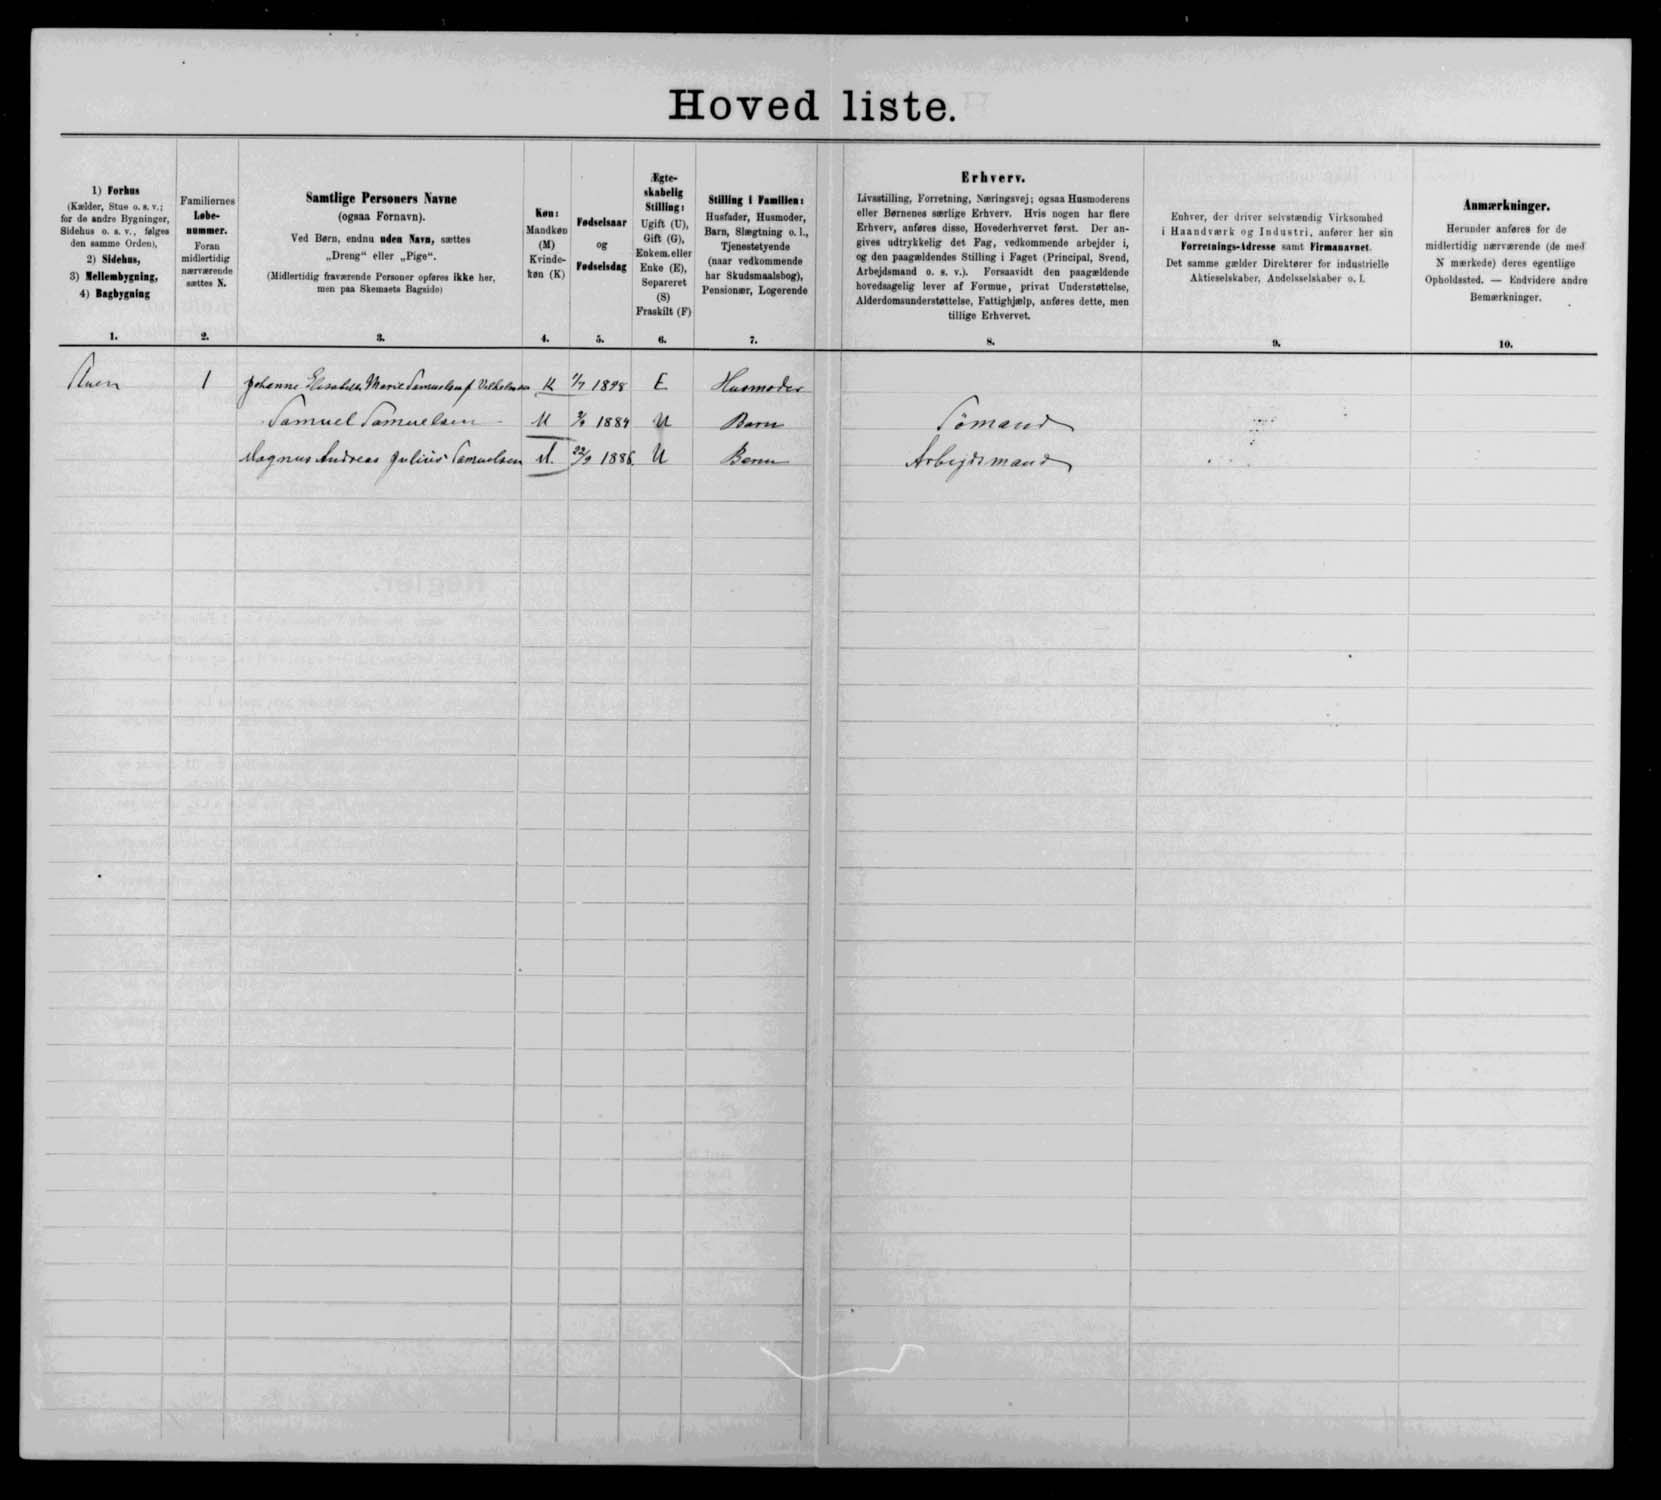 Hovedliste.
1) Forhus
(Kælder, Stue o. s. v.;
for de andre Bygninger,
Sidehus o. s. v., følges
den samme Orden),
2) Sidehus,
3) Mellembygning,
4) Bagbygning
1.
Familiernes
Løbe-
nummer.
Foran
midlertidig
nærværende
sættes N.
2.
Samtlige Personers Navne
(ogsaa Fornavn).
Ved Børn, endnu uden Navn, sættes
„Dreng“ eller „Pige“.
(Midlertidig fraværende Personer opføres ikke her,
men paa Skemaets Bagside)
3.
Køn:
Mandkøn
(M)
Kvinde-
køn (K)
4.
Fødselsaar
og
Fødselsdag
5.
Ægte-
skabelig
Stilling:
Ugift (U),
Gift (G),
Enkem. eller
Enke (E),
Separeret
(S)
Fraskilt (F)
6.
Stilling i Familien:
Husfader, Husmoder,
Barn, Slægtning o. l.,
Tjenestetyende
(naar vedkommende
har Skudsmaalsbog),
Pensionær, Logerende
7.
Erhverv.
Livsstilling, Forretning, Næringsvej; ogsaa Husmoderens
eller Børnenes særlige Erhverv. Hvis nogen har flere
Erhverv, anføres disse, Hovederhvervet først. Der an-
gives udtrykkelig det Fag, vedkommende arbejder i,
og den paagældendes Stilling i Faget (Principal, Svend,
Arbejdsmand o. s. v.). Forsaavidt den paagældende
hovedsagelig lever af Formue, privat Understøttelse,
Alderdomsunderstøttelse, Fattighjælp, anføres dette, men
tillige Erhvervet.
8.
Enhver, der driver selvstændig Virksomhed
i Haandværk og Industri, anfører her sin
Forretnings-Adresse samt Firmanavnet.
Det samme gælder Direktører for industrielle
Aktieselskaber, Andelsselskaber o. l.
9.
Anmærkninger.
Herunder anføres for de
midlertidig nærværende (de med
N mærkede) deres egentlige
Opholdssted. — Endvidere andre
Bemærkninger.
10.
1 Johanne Elisabeth Marie Samuelsen f. Vilhelmsen K 1/7 E Husmoder
Samuel Samuelsen M 1884 U Barn Sømand
Magnus Andreas Julius Samuelsen M. 22/9 1886 U Barn Arbejdsmand